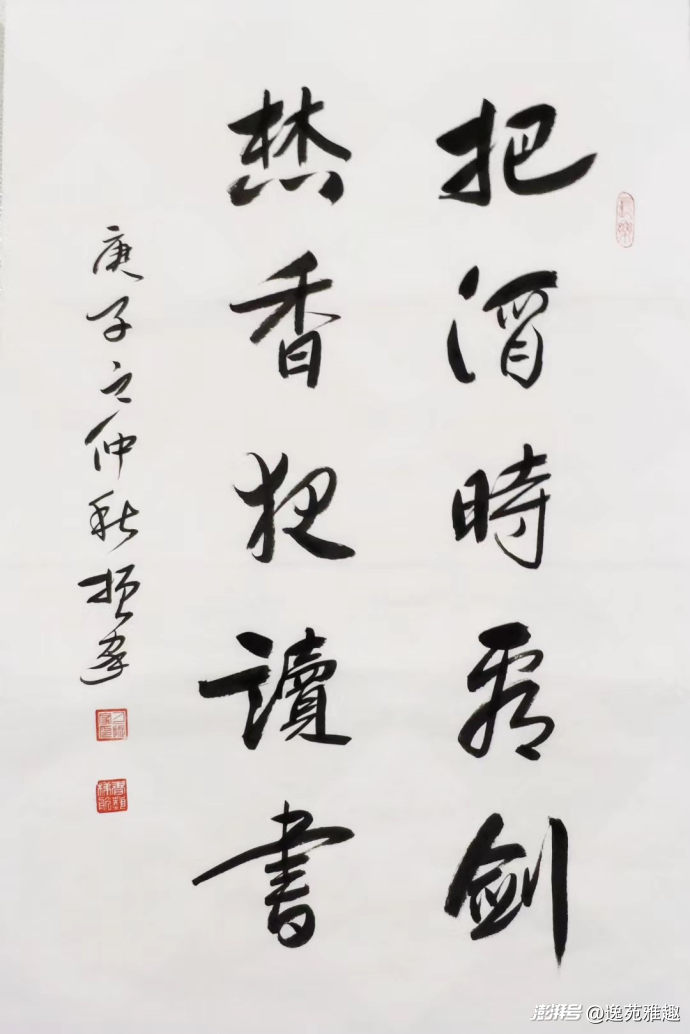 把酒時看劍
焚香夜讀書
庚子之仲秋振
澎湃号 @逸苑雅趣